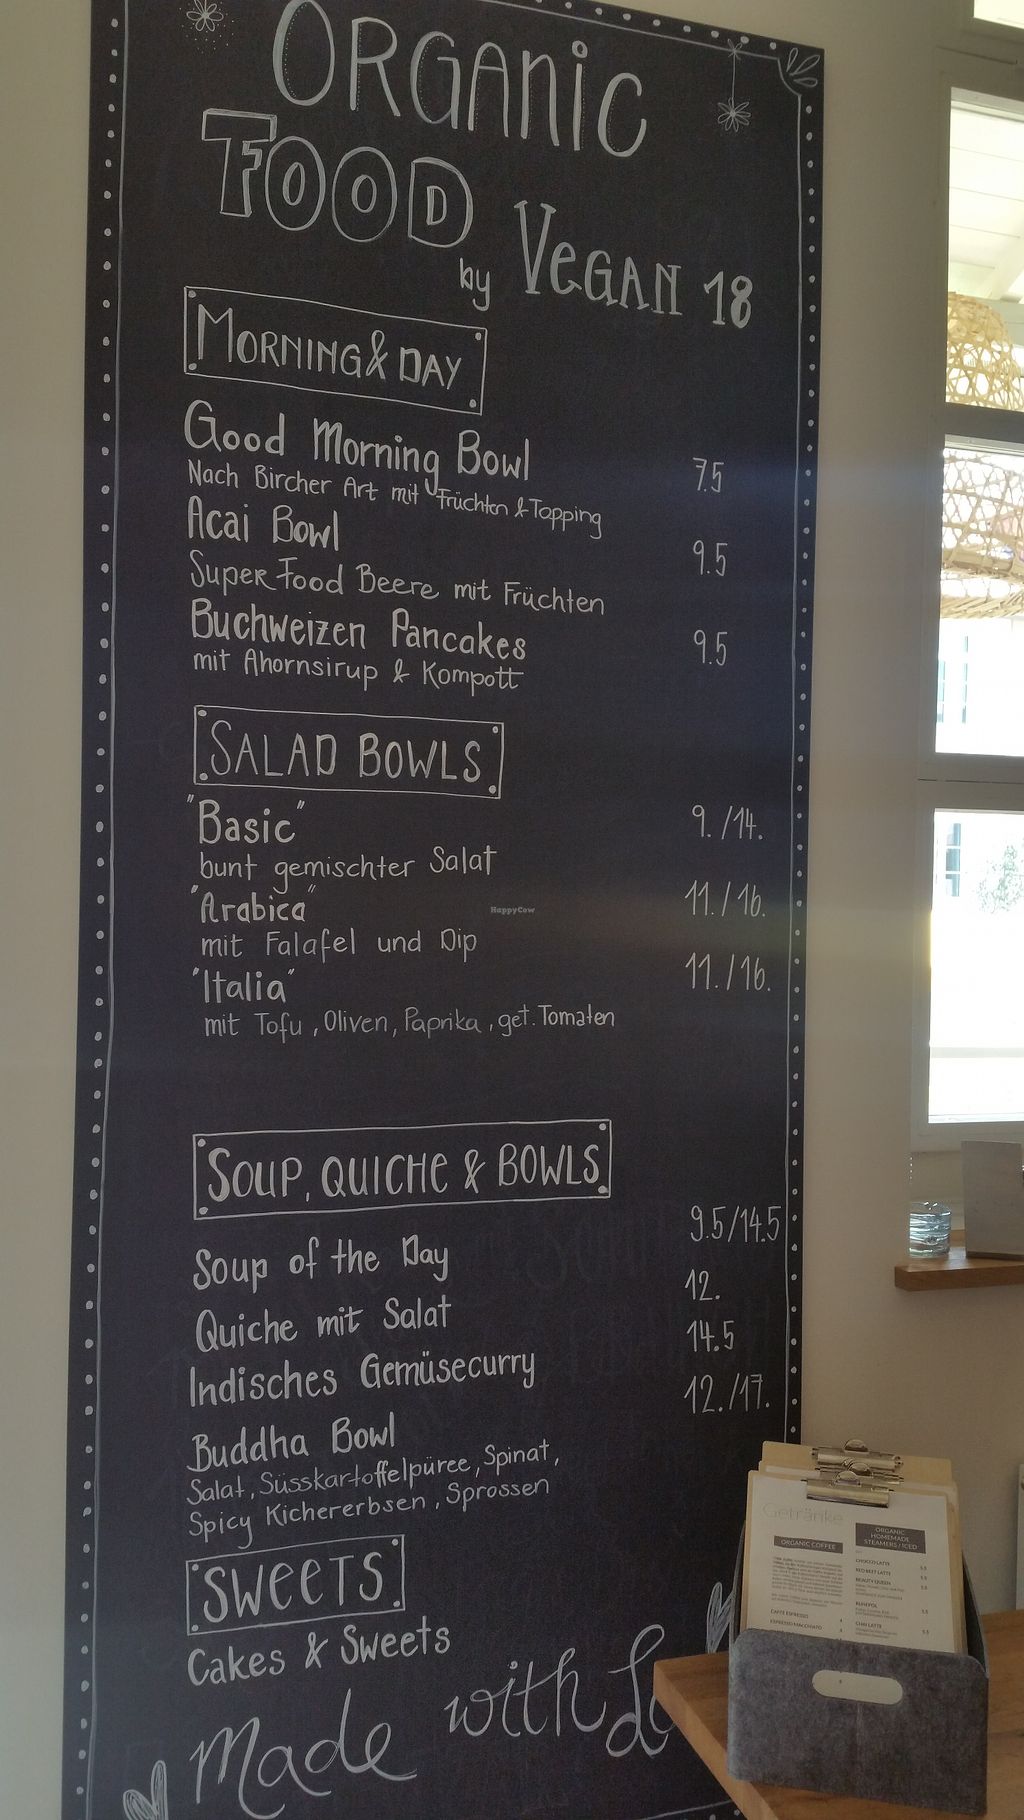 ORGANIC
FOOD
by VEGAN 18
MORNING & DAY
Good Morning Bowl 7.5
Nach Bircher Art mit Früchten & Topping
Acai Bowl 9.5
Super Food Beere mit Früchten
Buchweizen Pancakes 9.5
mit Ahornsirup & Kompott
SALAD BOWLS
"Basic" 9./14.
bunt gemischter Salat
"Arabica" 11./16.
mit Falafel und Dip
"Italia" 11./16.
mit Tofu, Oliven, Paprika, get. Tomaten
HappyCow
SOUP, QUICHE & BOWLS
Soup of the Day 9.5/14.5
Quiche mit Salat 12.
Indisches Gemüsecurry 14.5
Buddha Bowl 12./17.
Salat, Süsskartoffelpüree, Spinat,
Spicy Kichererbsen, Sprossen
SWEETS
Cakes & Sweets
Made with
Getränke
ORGANIC COFFEE
ORGANIC
HOMEMADE
STEAMERS / ICED
CHOCO LATTE
RED BEET LATTE
BEAUTY QUEEN
CHAI LATTE
CAFFE ESPRESSO
ESPRESSO MACCHIATO